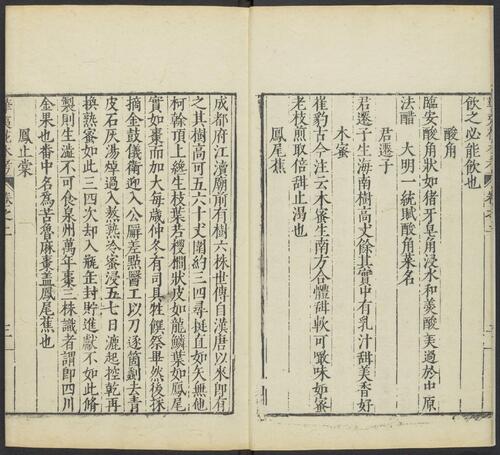 飲之必能飲也
酸角
臨安酸角狀如猪牙皂角浸水和羮酸美過於中原
法醋　大明一統賦酸角菜名
君遷子
君遷子生海南樹高丈餘其實中有乳汁甜美香好
木蜜
崔豹古今注云木蜜生南方合體甜軟可噉味如蜜
老枝煎取倍甜止渴也
鳳尾蕉
成都府江瀆廟前有樹六株世傳自漢唐以來即有
之其樹高可五六十丈圍約三四尋挺直如矢無他
柯榦頂上纔生枝葉若椶櫚狀皮如龍鱗葉如鳳尾
實如棗而加大每歲仲冬有司具牲饌祭畢然後採
摘金鼓儀衛迎入公廨差點醫工以刀逐箇剗去青
皮石灰湯焯過入熬熟冷蜜浸五七日漉起控乾再
換熟蜜如此三四次却入瓶缶封貯進獻不如此脩
製則生澁不可食泉州萬年棗三株識者謂即四川
金果也番中名為苦魯麻棗盖鳳尾蕉也
鳳止棠